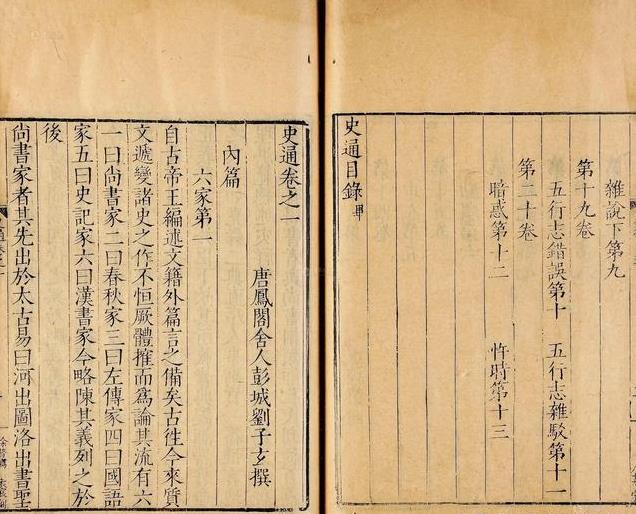 雜說下第九
第十九卷
五行志錯誤第十 五行志雜駁第十一
第二十卷
暗惑第十二 忤時第十三
史通目錄畢
史通卷之一
唐鳳閣舍人彭城劉子玄撰
內篇
六家第一
自古帝王編述文籍外篇言之備矣古往今來質
文遞變諸史之作不恒厥體推而爲論其流有六
一曰尚書家二曰春秋家三曰左傳家四曰國語
家五曰史記家六曰漢書家今略陳其義列之於
後
尚書家者其先出於太古易曰河出圖洛出書聖